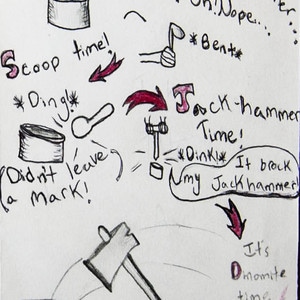 Uh! Nope...
*Bent*
Scoop time!
*Ding!*
Jack-hammer
Time!
*Dink!*
Didn't leave
a mark!
It brock
my Jackhammer!
It's
Dinomite
time